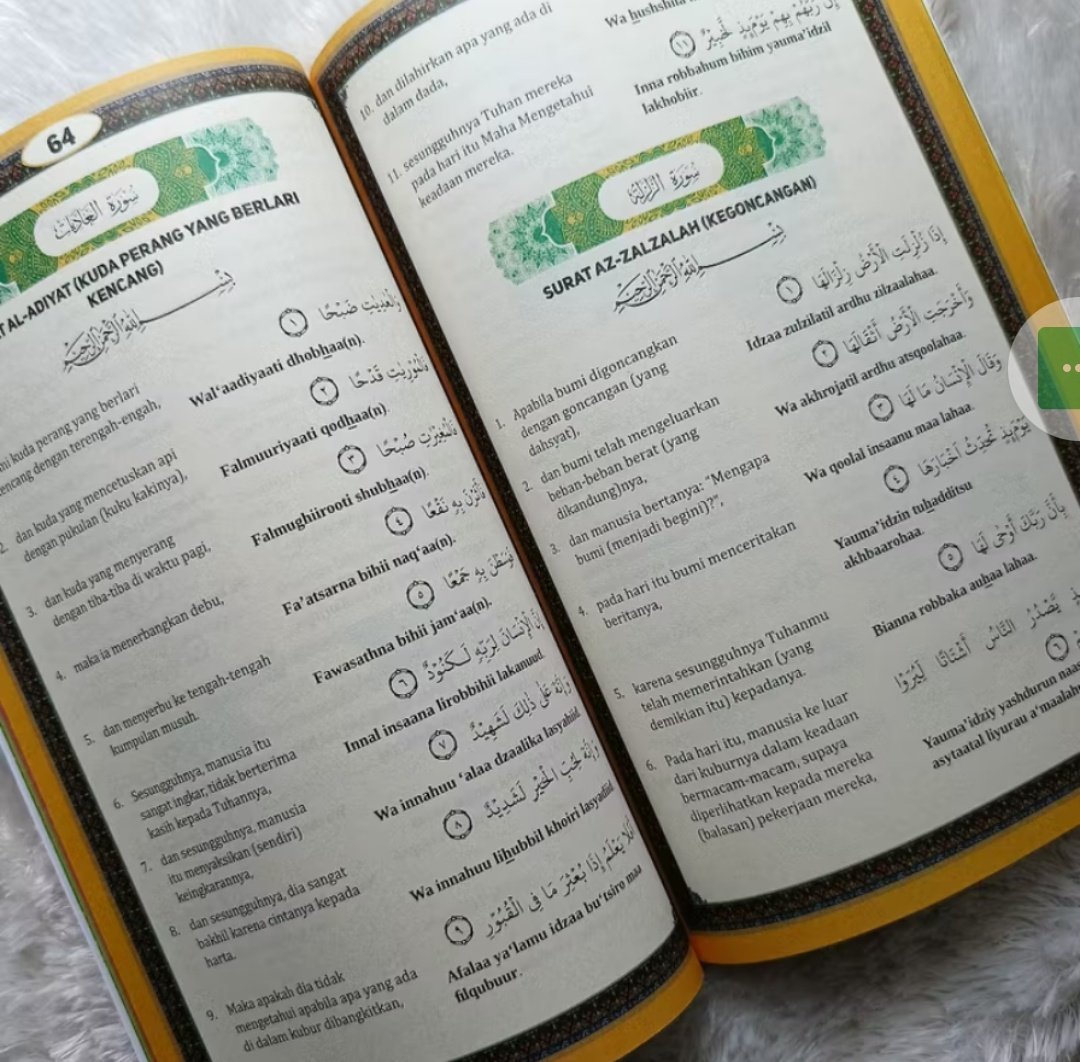 64
سُورَةُ العَادِيَاتِ
AL-ADIYAT (KUDA PERANG YANG BERLARI
KENCANG)
بِسْمِ اللَّهِ الرَّحْمَٰنِ الرَّحِيمِ
kuda perang yang berlari
dengan terengah-engah,
ضَبْحًا ١
Wal‘aadiyaati dhobhaa(n).
2. dan kuda yang mencetuskan api
dengan pukulan (kuku kakinya),
قَدْحًا ٢
Falmuuriyaati qodhaa(n).
3. dan kuda yang menyerang
dengan tiba-tiba di waktu pagi,
صُبْحًا ٣
Falmughiirooti shubhaa(n).
4. maka ia menerbangkan debu,
بِهِ نَقْعًا ٤
Fa’atsarna bihii naq‘aa(n).
5. dan menyerbu ke tengah-tengah
kumpulan musuh.
بِهِ جَمْعًا ٥
Fawasathna bihii jam‘aa(n).
6. Sesungguhnya, manusia itu
sangat ingkar, tidak berterima
kasih kepada Tuhannya,
الْإِنْسَانَ لِرَبِّهِ لَكَنُودٌ ٦
Innal insaana lirobbihii lakanuud.
7. dan sesungguhnya, manusia
itu menyaksikan (sendiri)
keingkarannya,
عَلَىٰ ذَٰلِكَ لَشَهِيدٌ ٧
Wa innahuu ‘alaa dzaalika lasyahiid.
8. dan sesungguhnya, dia sangat
bakhil karena cintanya kepada
harta.
لِحُبِّ الْخَيْرِ لَشَدِيدٌ ٨
Wa innahuu lihubbil khoiri lasyadiid.
9. Maka apakah dia tidak
mengetahui apabila apa yang ada
di dalam kubur dibangkitkan,
يَعْلَمُ إِذَا بُعْثِرَ مَا فِي الْقُبُورِ ٩
Afalaa ya‘lamu idzaa bu‘tsiro maa
filqubuur.
10. dan dilahirkan apa yang ada di
dalam dada,
Wa
11. sesungguhnya Tuhan mereka
pada hari itu Maha Mengetahui
keadaan mereka.
رَبَّهُمْ بِهِمْ يَوْمَئِذٍ لَخَبِيرٌ ١١
Inna robbahum bihim yauma’idzil
lakhobiir.
سُورَةُ الزَّلْزَلَةِ
SURAT AZ-ZALZALAH (KEGONCANGAN)
بِسْمِ اللَّهِ الرَّحْمَٰنِ الرَّحِيمِ
1. Apabila bumi digoncangkan
dengan goncangan (yang
dahsyat),
إِذَا زُلْزِلَتِ الْأَرْضُ زِلْزَالَهَا ١
Idzaa zulzilatil ardhu zilzaalahaa.
2. dan bumi telah mengeluarkan
beban-beban berat (yang
dikandung)nya,
وَأَخْرَجَتِ الْأَرْضُ أَثْقَالَهَا ٢
Wa akhrojatil ardhu atsqoolahaa.
3. dan manusia bertanya: "Mengapa
bumi (menjadi begini)?",
وَقَالَ الْإِنْسَانُ مَا لَهَا ٣
Wa qoolal insaanu maa lahaa.
4. pada hari itu bumi menceritakan
beritanya,
يَوْمَئِذٍ تُحَدِّثُ أَخْبَارَهَا ٤
Yauma’idzin tuhadditsu
akhbaarohaa.
5. karena sesungguhnya Tuhanmu
telah memerintahkan (yang
demikian itu) kepadanya.
بِأَنَّ رَبَّكَ أَوْحَىٰ لَهَا ٥
Bianna robbaka auhaa lahaa.
6. Pada hari itu, manusia ke luar
dari kuburnya dalam keadaan
bermacam-macam, supaya
diperlihatkan kepada mereka
(balasan) pekerjaan mereka,
يَصْدُرُ النَّاسُ أَشْتَاتًا لِيُرَوْا
٦
Yauma’idziy yashdurun
asytaatal liyurau a‘maalah